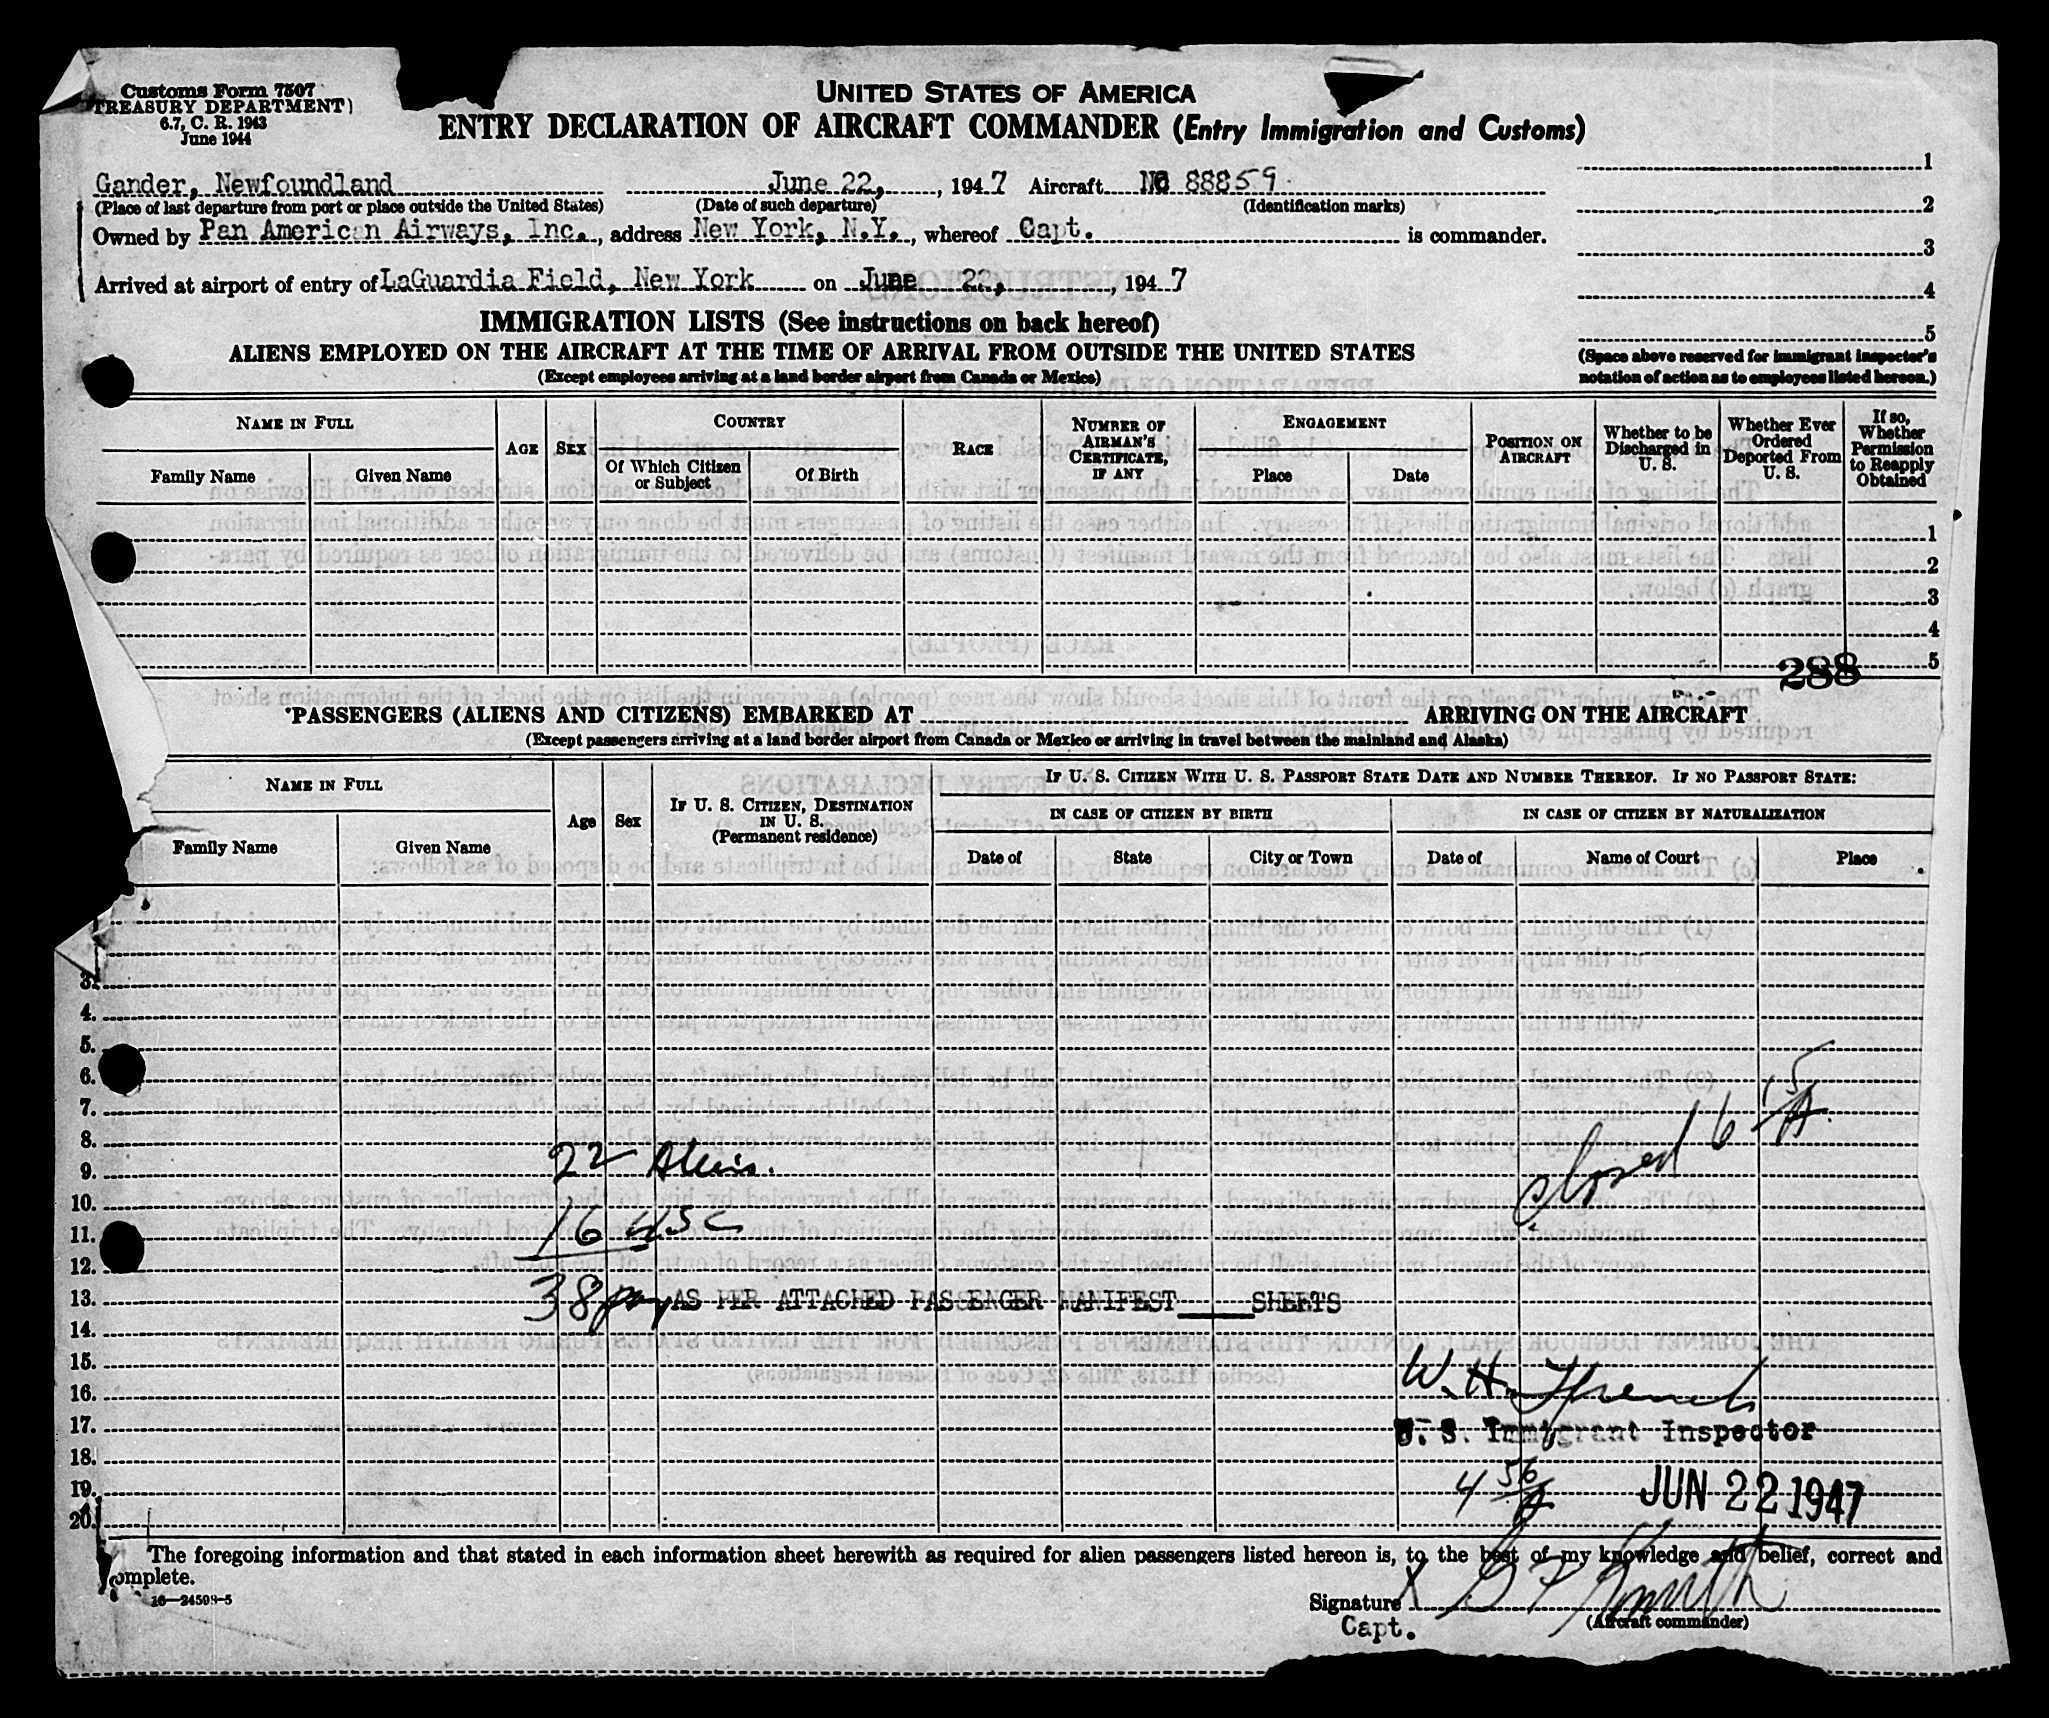 Customs Form 7507
(TREASURY DEPARTMENT)
6.7, C. R. 1943
June 1944
UNITED STATES OF AMERICA
ENTRY DECLARATION OF AIRCRAFT COMMANDER (Entry Immigration and Customs)
Gander, Newfoundland June 22, , 1947 Aircraft NC 88859
(Place of last departure from port or place outside the United States) (Date of such departure) (Identification marks)
Owned by Pan American Airways, Inc., address New York, N.Y., whereof Capt. is commander.
Arrived at airport of entry of LaGuardia Field, New York on June 22, , 1947
1
2
3
4
5
(Space above reserved for immigrant inspector's
notation of action as to employees listed hereon.)
IMMIGRATION LISTS (See instructions on back hereof)
ALIENS EMPLOYED ON THE AIRCRAFT AT THE TIME OF ARRIVAL FROM OUTSIDE THE UNITED STATES
(Except employees arriving at a land border airport from Canada or Mexico)
NAME IN FULL
Family Name Given Name
AGE
SEX
COUNTRY
Of Which Citizen or Subject
Of Birth
RACE
NUMBER OF AIRMAN'S CERTIFICATE, IF ANY
ENGAGEMENT
Place Date
POSITION ON AIRCRAFT
Whether to be Discharged in U. S.
Whether Ever Ordered Deported From U. S.
If so, Whether Permission to Reapply Obtained
1
2
3
4
5
288
PASSENGERS (ALIENS AND CITIZENS) EMBARKED AT ARRIVING ON THE AIRCRAFT
(Except passengers arriving at a land border airport from Canada or Mexico or arriving in travel between the mainland and Alaska)
NAME IN FULL
Family Name Given Name
Age
Sex
IF U. S. CITIZEN, DESTINATION IN U. S.
(Permanent residence)
IF U. S. CITIZEN WITH U. S. PASSPORT STATE DATE AND NUMBER THEREOF. IF NO PASSPORT STATE:
IN CASE OF CITIZEN BY BIRTH IN CASE OF CITIZEN BY NATURALIZATION
Date of State City or Town Date of Name of Court Place
3.
4.
5.
6.
7.
8.
9. 22 Aliens.
closed 6 15/A.
10.
11. 16 USC
12.
13. 38 AS PER ATTACHED PASSENGER MANIFEST SHEETS
14.
15.
16. W. H. French
17. U. S. Immigrant Inspector
18.
19. 4 56/A JUN 22 1947
20.
The foregoing information and that stated in each information sheet herewith as required for alien passengers listed hereon is, to the best of my knowledge and belief, correct and
complete.
16—24598-5
Signature X G F Smith
Capt. (Aircraft commander)